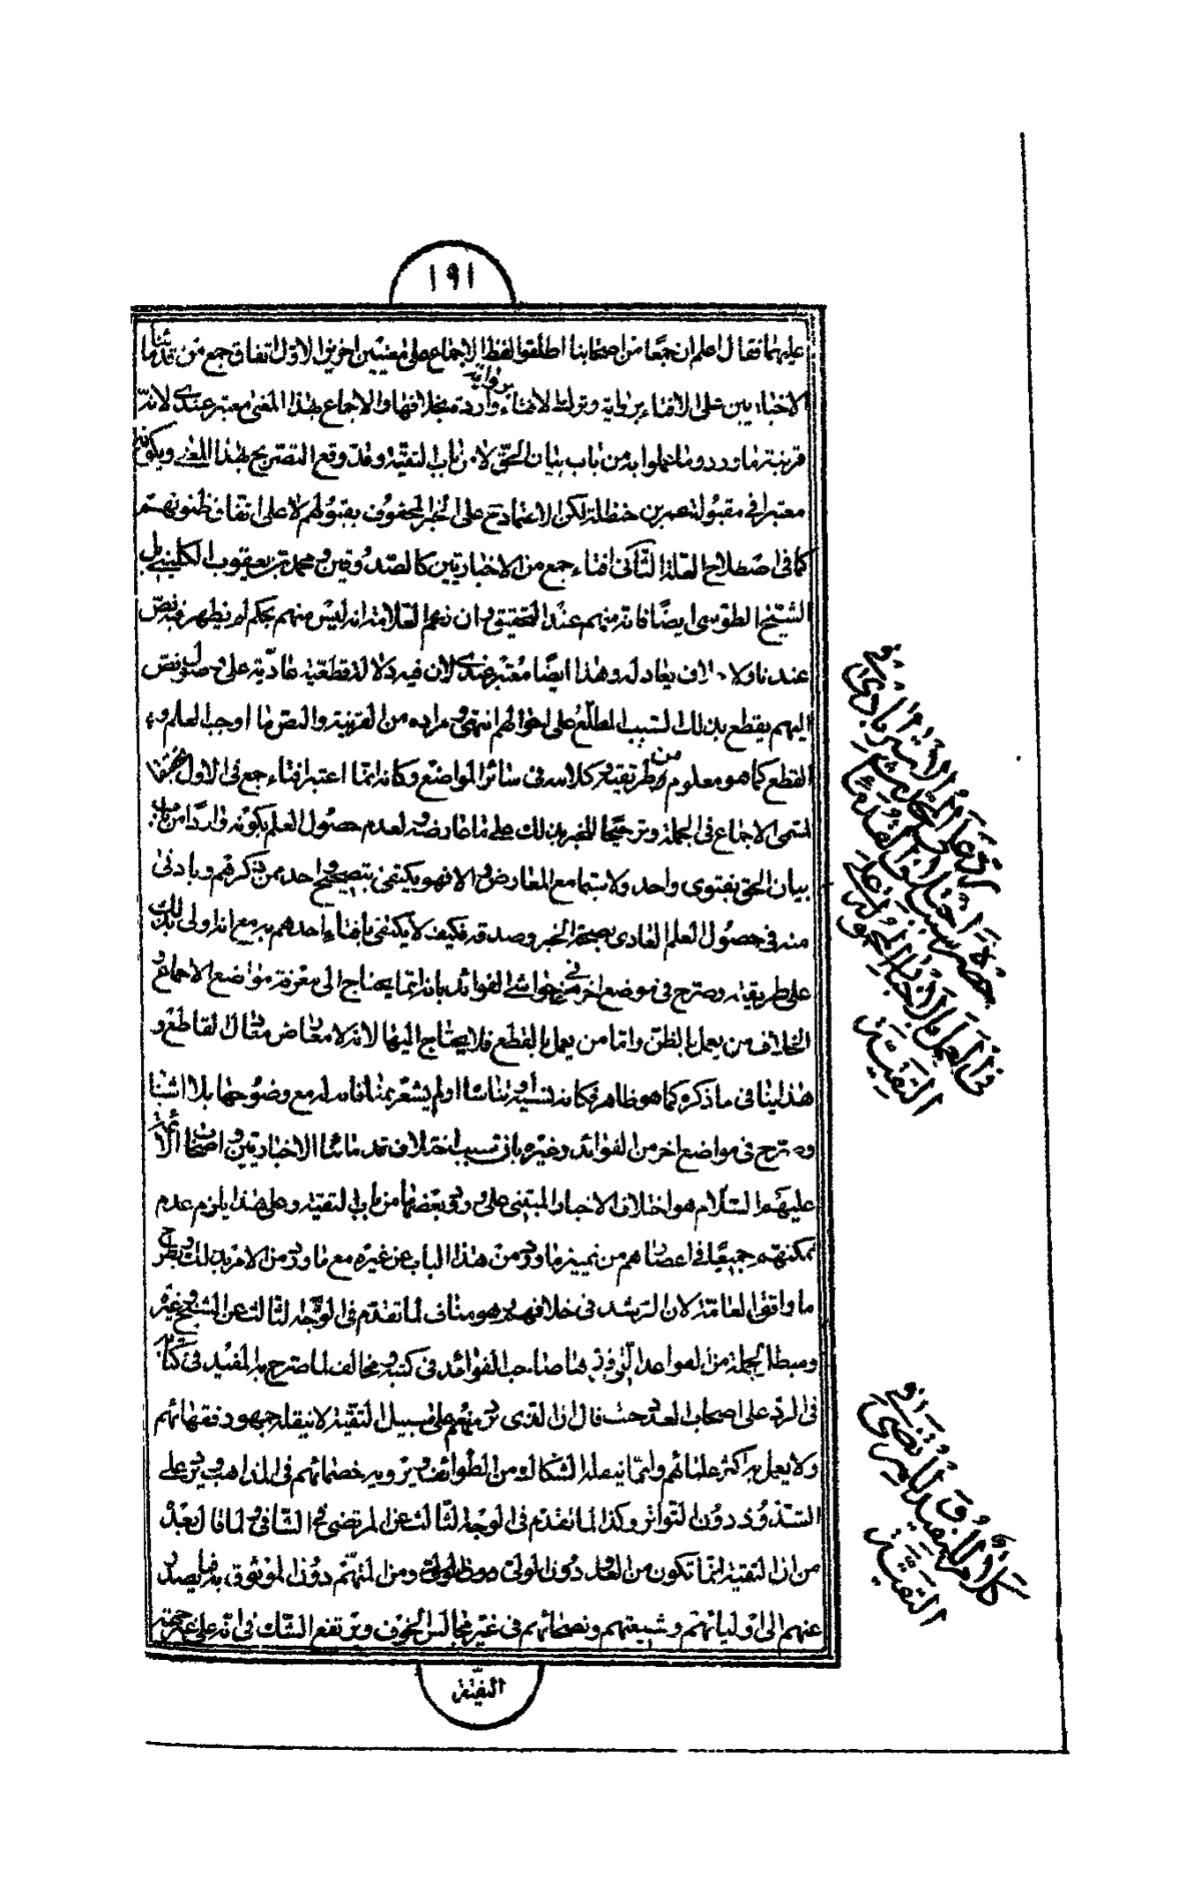 ١٩١
عليهما فقال اعلم ان جمعا من اصحابنا اطلقوا لفظ الاجماع على معنيين اخرين الاول اتفاق جمع من قدمائنا
الاخباريين على الافتاء برواية وترك الافتاء برواية واردة بخلافها والاجماع بهذا المعنى معتبر عندى لانه
قرينة ما ورد وما عملوا به من باب بيان الحق لا من باب التقية وقد وقع التصريح بهذا المعنى وبكونه
معتبرا فى مقبولة عمر بن حنظلة لكن الاعتماد ح على الخبر المحفوف بقبولهم لا على اتفاق ظنونهم
كما فى اصطلاح العامة الثانى افتاء جمع من الاخباريين كالصدوقين ومحمد بن يعقوب الكلينى بل
الشيخ الطوسى ايضا فانه منهم عند التحقيق وان زعم العلامة انه ليس منهم بحكم لم يظهر فيه نص
عندنا ولا خلاف يعادله وهذا ايضا معتبر عندى لان فيه دلالة قطعية عادية على وصول نص
اليهم يقطع بذلك اللبيب المطلع على احوالهم انتهى ومراده من القرينة والنص ما اوجب العلم و
القطع كما هو معلوم من طريقته وكلامه فى سائر المواضع وكانه انما اعتبر افتاء جمع فى الاول
لتسمى الاجماع فى الجملة وترجيحا للخبر بذلك على ما عارضه ولعدم حصول العلم بكونه واردا من باب
بيان الحق بفتوى واحد ولا سيما مع المعارض والا فهو يكتفى بتصحيح احد ممن ذكرهم وبادنى
منه فى حصول العلم العادى بصحة الخبر وصدقه فكيف لا يكتفى بافتاء احدهم به مع انه اولى بذلك
على طريقته وصرح فى موضع اخر من حواشى الفوائد بانه انما يحتاج الى معرفة مواضع الاجماع و
الخلاف من يعمل بالظن واما من يعمل بالقطع فلا يحتاج اليها لانه لا معارض مقال لقاطع و
هذا ينافى ما ذكره كما هو ظاهر فكانه نسيه او تناساه او لم يشعر بمنافاته له مع وضوحها بلا اشتباه
وصرح فى مواضع اخر من الفوائد وغيره بان سبب اختلاف قدمائنا الاخباريين واصحاب الائمة
عليهم السلام هو اختلاف الاخبار المبتنى على ورود بعضها من باب التقية وعلى هذا يلزم عدم
تمكنهم جميعا فى اعصارهم من تمييز ما ورد من هذا الباب عن غيره مع ما ورد من الامر بذلك وبطرح
ما وافق العامة لان الرشد فى خلافهم وهو مناف لما تقدم فى الوجه الثالث عن الشيخ وغيره
ومبطل لجملة من القواعد صاحب الفوائد فى كتبه ومخالف لما صرح به المفيد فى كتابه
فى الرد على اصحاب العدد حيث قال ان الذى يرد عنهم على سبيل التقية لا ينقله جمهور فقهائهم
ولا يعمل به اكثر علمائهم وانما ينقله الشكاك من الطوائف ويرويه خصمائهم فى المذاهب ويرد على
الشذوذ دون التواتر وكذا لما تقدم فى الوجه الثالث عن المرتضى فى الشافى ولما قال بعده
من ان التقية انما تكون من العدو دون الولى ومن المتهم دون الموثوق به فما يصدر
عنهم الى اوليائهم وشيعتهم ونصحائهم فى غير مجالس الخوف يرتفع الشك فى انه على غير جهة
التقية
التقية
كلام المفيد والمرتضى فى
التقية